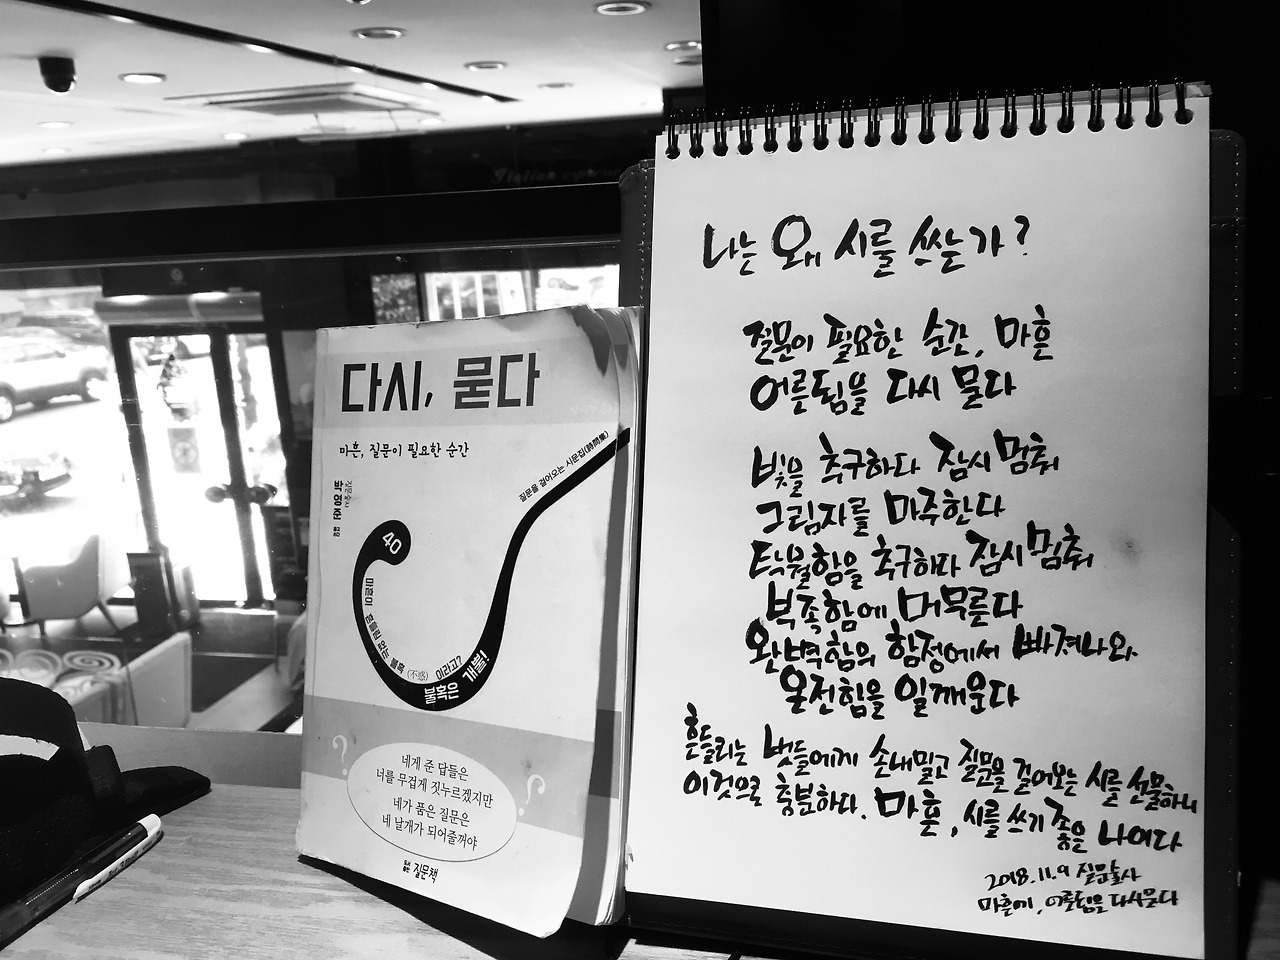 다시, 묻다
마흔, 질문이 필요한 순간
질문술사
박영준
질문을 걸어오는 시문집(詩問集)
40
마흔이 흔들림 없는 불혹(不惑)이라고?
불혹은 개뿔!
네게 준 답들은
너를 무겁게 짓누르겠지만
네가 품은 질문은
네 날개가 되어줄꺼야
질문책
나는 왜 시를 쓰는가?
질문이 필요한 순간, 마흔
어른됨을 다시 묻다
빛을 추구하다 잠시 멈춰
그림자를 마주한다
탁월함을 추구하다 잠시 멈춰
부족함에 머무른다
완벽함의 함정에서 빠져나와
온전힘을 일깨운다
흔들리는 벗들에게 손내밀고 질문을 걸어오는 시를 선물하니
이것으로 충분하다. 마흔, 시를 쓰기 좋은 나이다
2018.11.9 질문술사
마흔에, 어른됨을 다시묻다